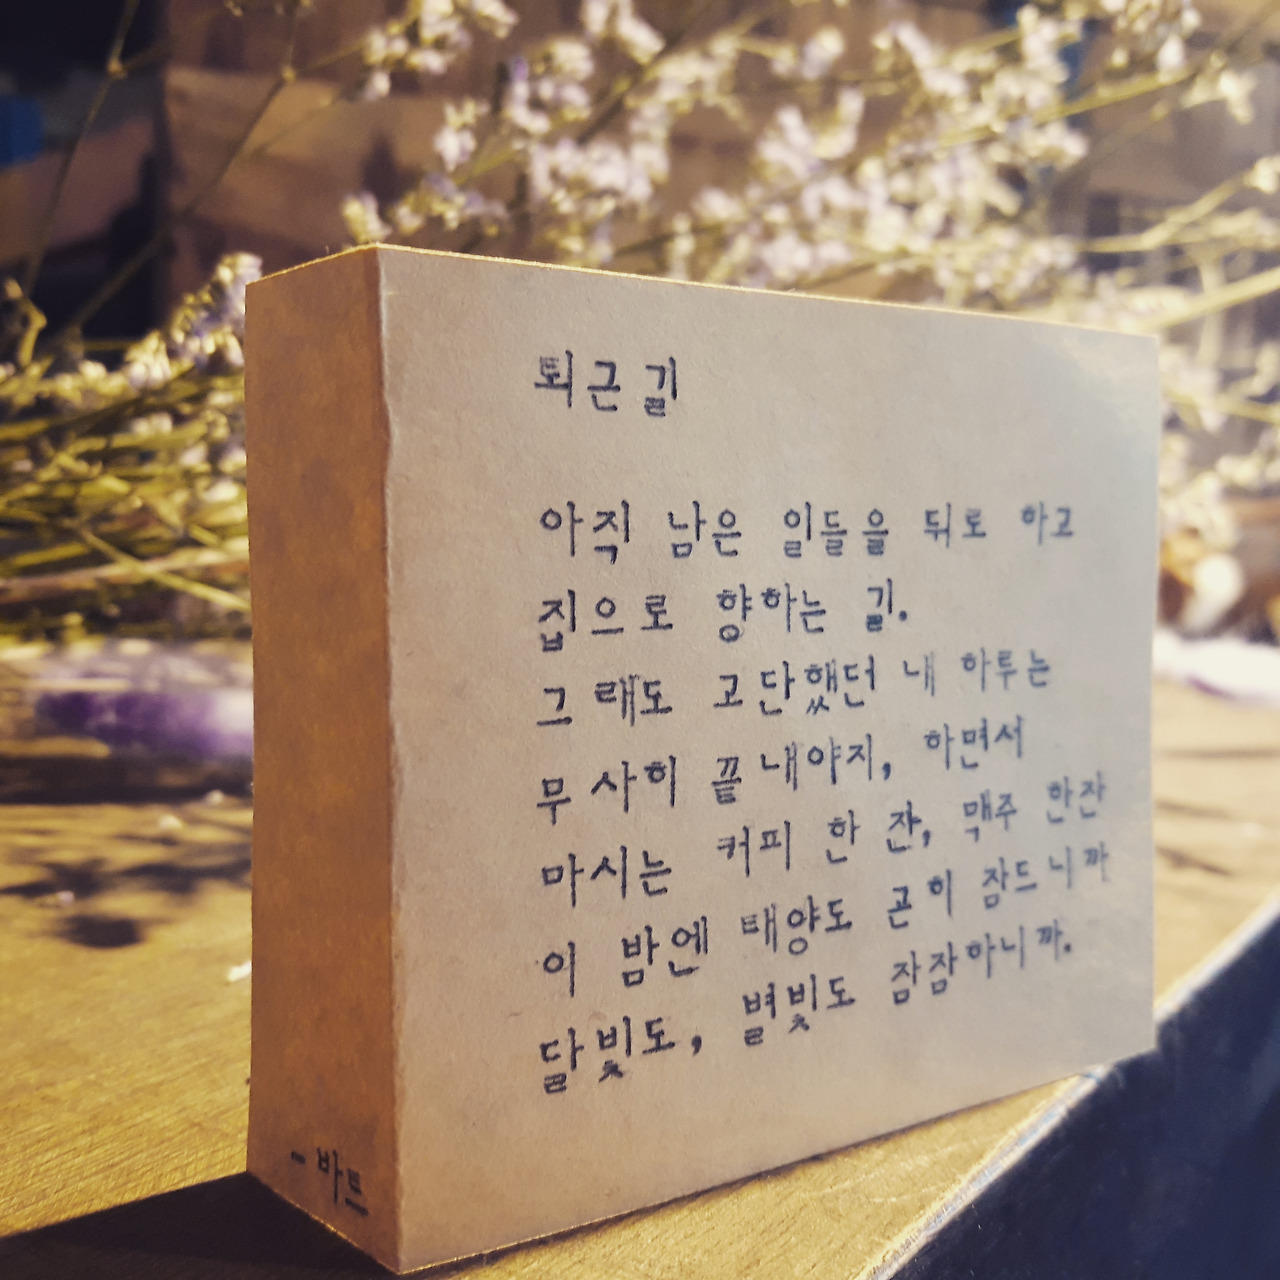 퇴근길
아직 남은 일들을 뒤로 하고
집으로 향하는 길.
그래도 고단했던 내 하루는
무사히 끝내야지, 하면서
마시는 커피 한 잔, 맥주 한잔
이 밤엔 태양도 곤히 잠드니까
달빛도, 별빛도 잠잠하니까.
- 바트